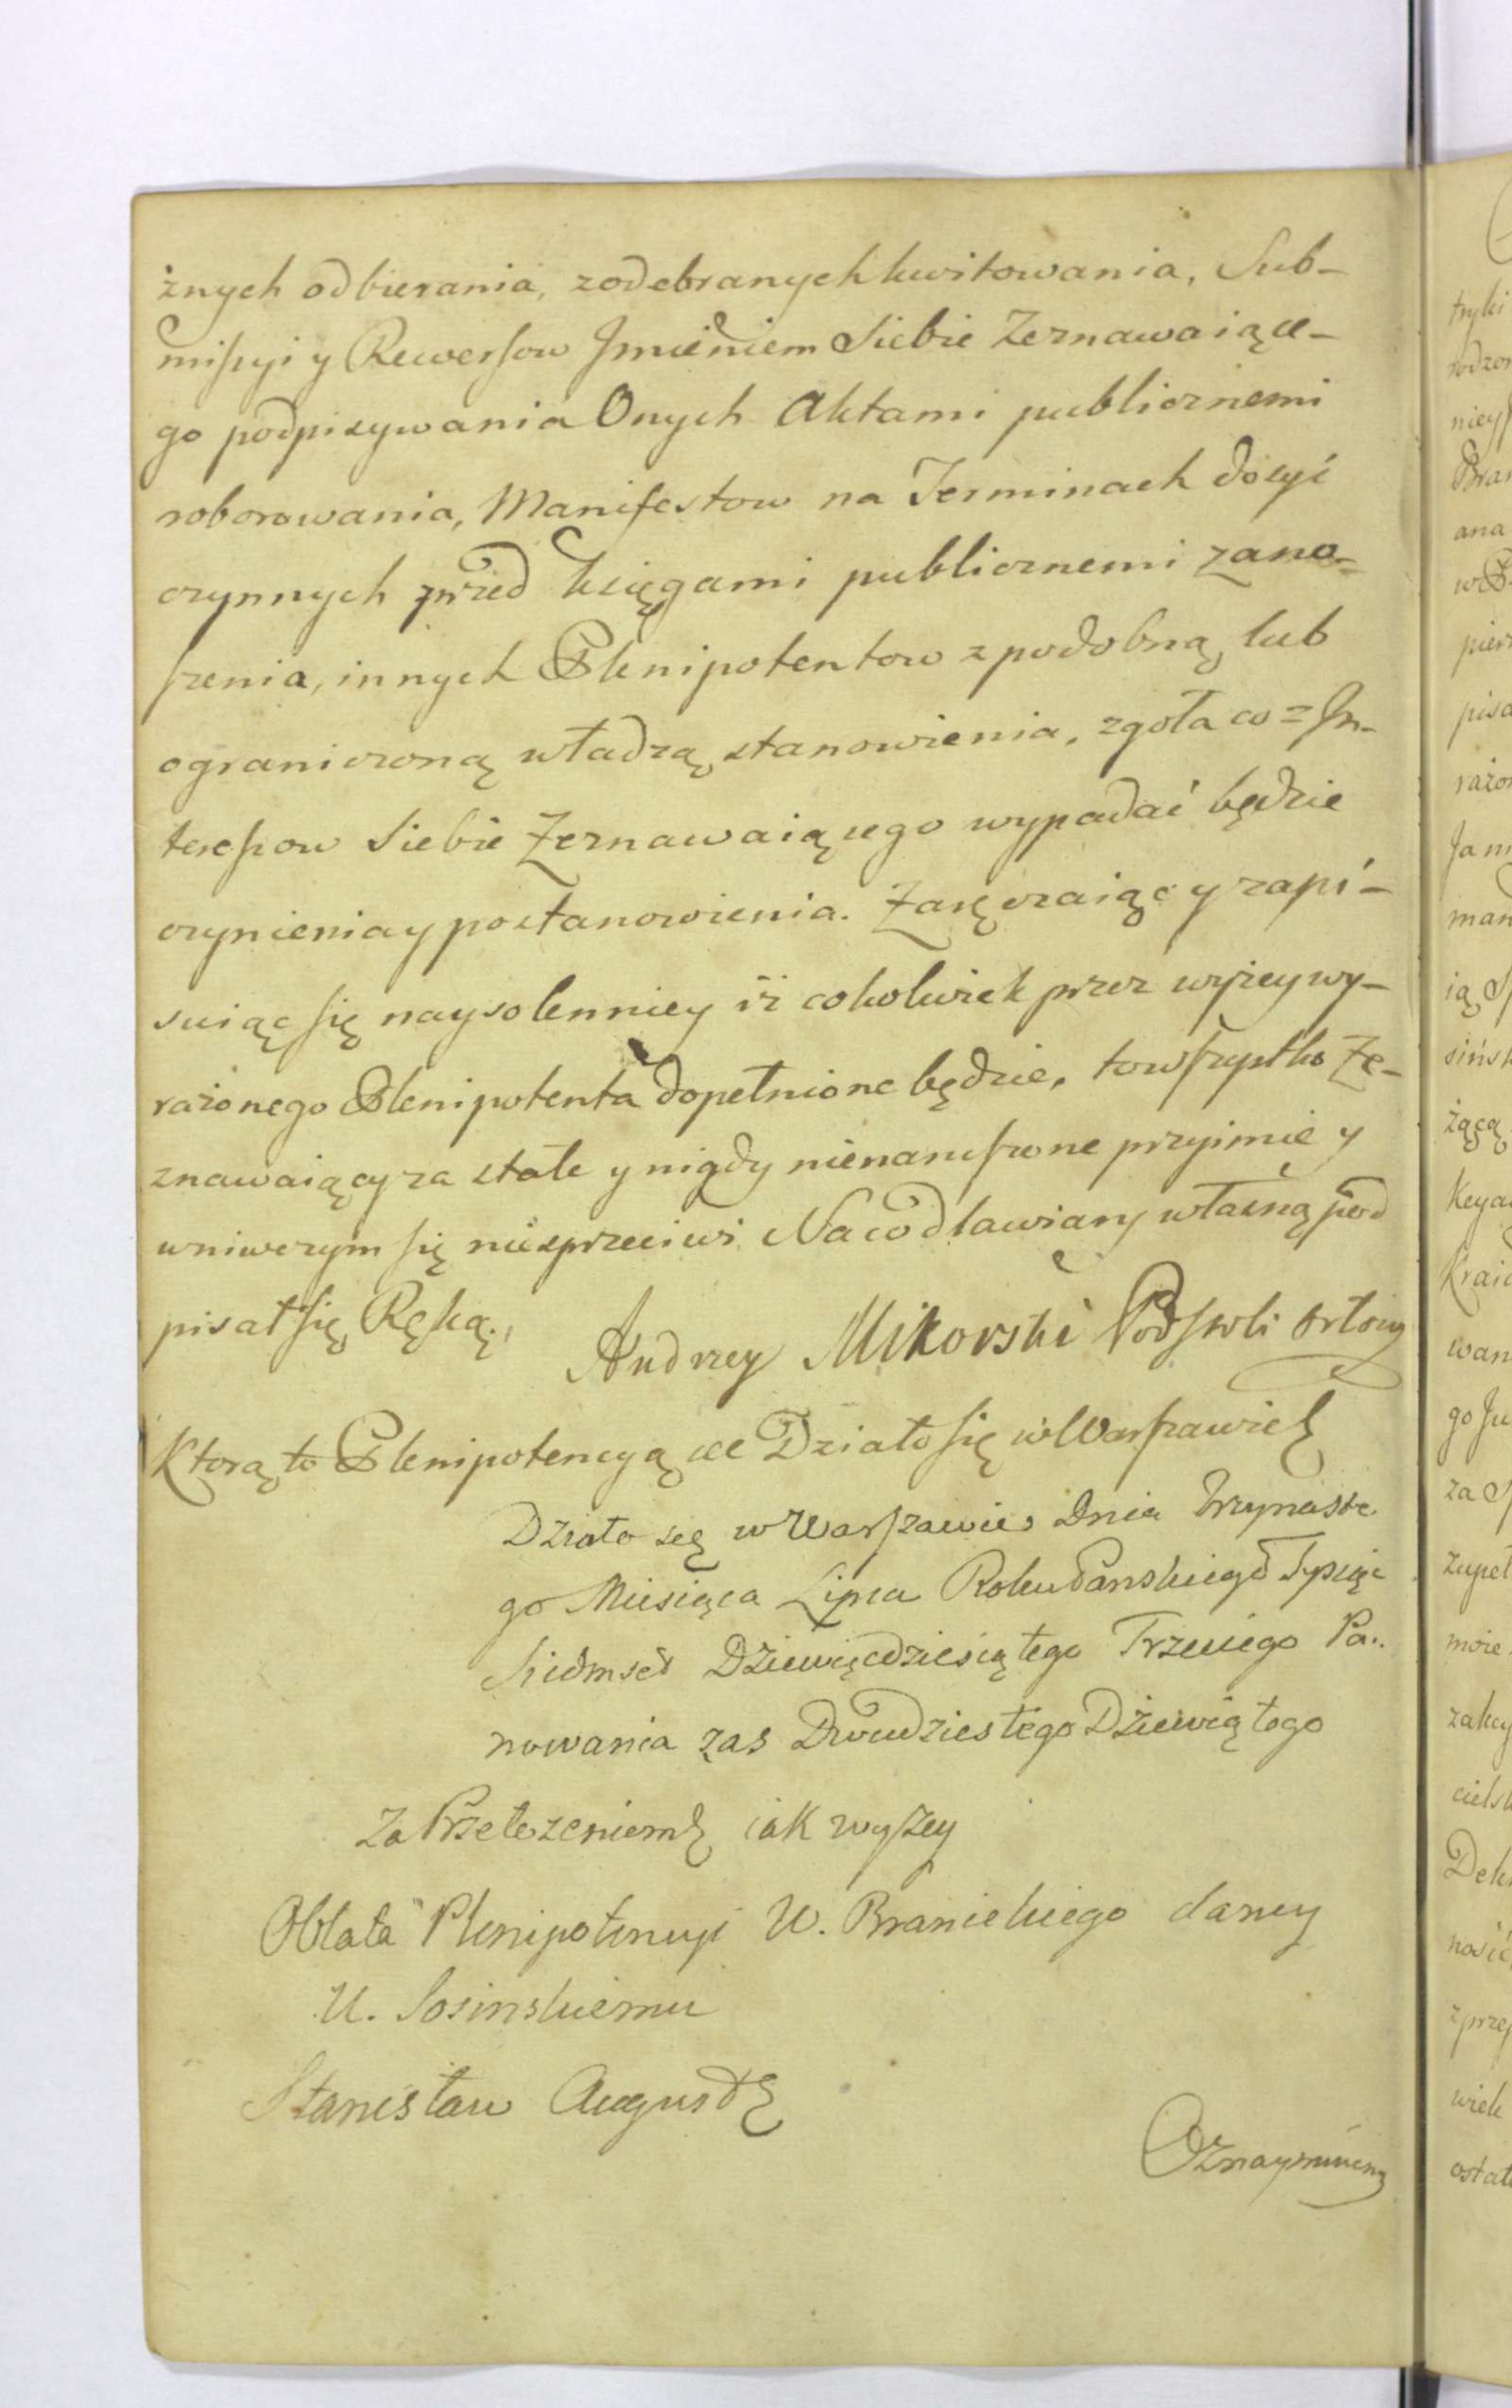 żnych odbierania, z odebranych kwitowania, Sub-
mifsyi y Rewersow Jmieniem Siebie Zeznawaiące-
go podpisywania Onych Aktami publicznemi
roborowania, Manifestow na Terminach dosyć
czynnych przed księgami publicznemi zano-
szenia, innych Plenipotentow z podobną lub
ograniczoną władzą stanowienia, zgoła co z Jn-
teressow Siebie Zeznawaiącego wypadać będzie
czynienia y postanowienia. Zaręczaiąc y zapi-
suiąc się naysolenniey iż cokolwiek przez wyżey wy-
rażonego Plenipotenta dopełnione będzie, to wszystko Ze-
znawaiący za stałe y nigdy nienaruszone przyimie y
w niwczym się niesprzeciwi. Na co dla wiary własną pod
pisał się Ręką.,
Andrzey Mikorski Podstoli
Ktorą to Plenipotencyą etc Działo się w Warszawie
Działo się w Warszawie Dnia Trzynaste
go Miesiąca Lipca Roku Panskiego Tysiąc
Siedmset Dziewięćdziesiątego Trzeciego Pa..
nowania zas Dwudziestego Dziewiątego
Za Przełozeniem jak wyszey
Oblata Plenipotencyi W. Branickiego daney
U. Sosinskiemu
Stanisław August
Oznaymuiemy